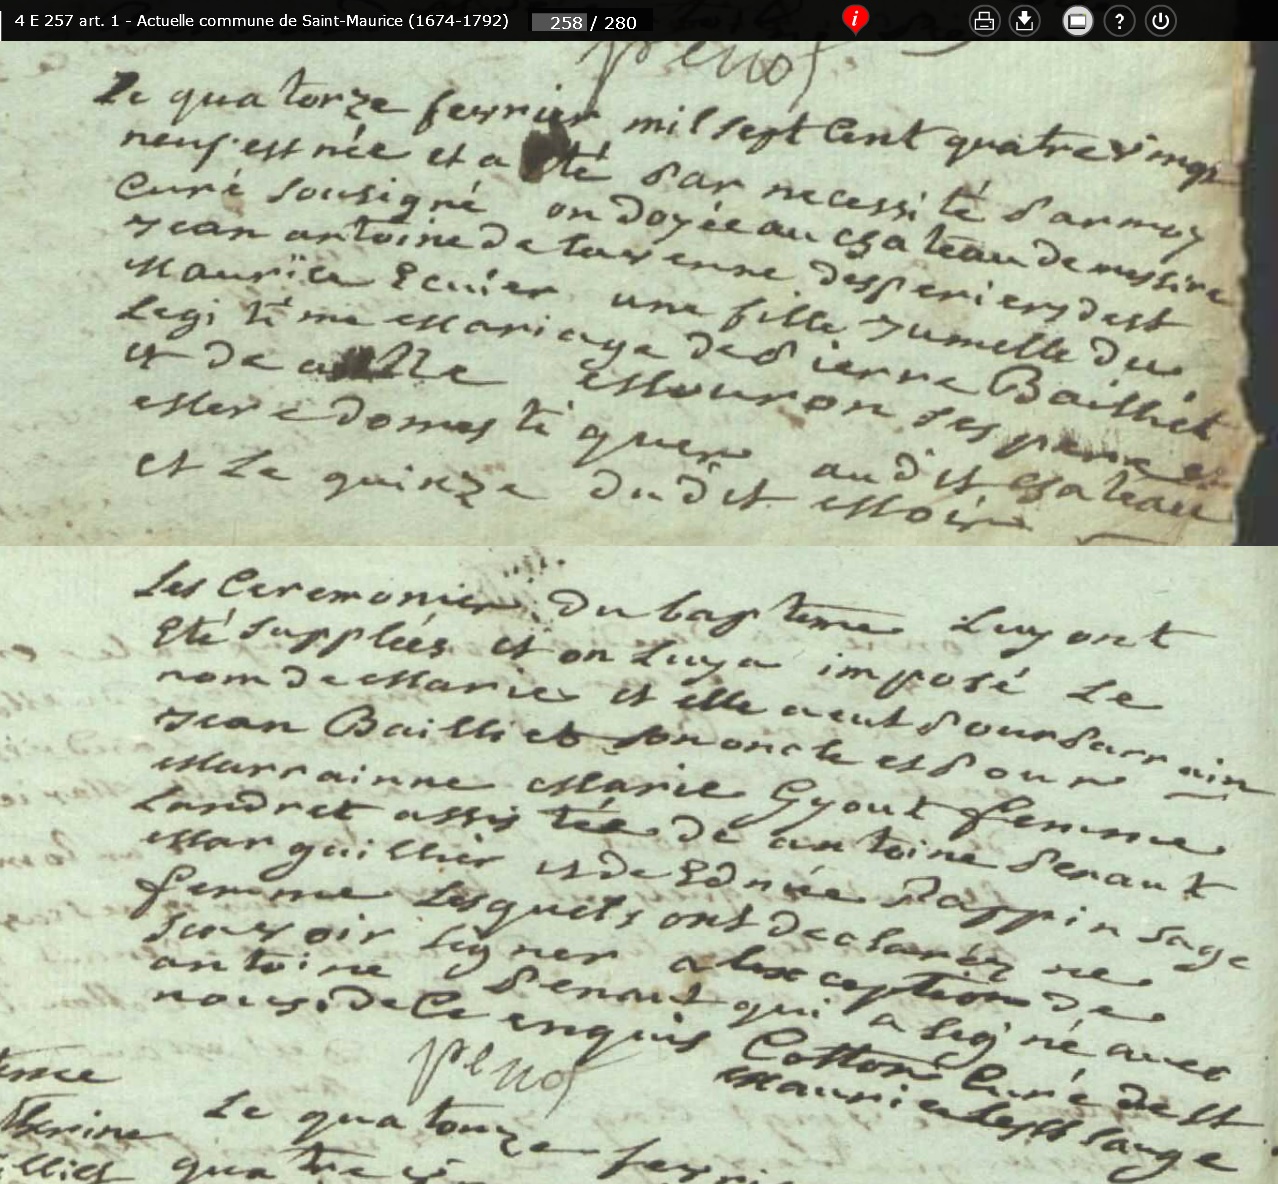 4 E 257 art. 1 - Actuelle commune de Saint-Maurice (1674-1792) 258 / 280
penot
Le quatorze fevrier mil sept Cent quatre vingt
neuf est née et a été par necessité par moy
Curé sousigné ondoyée au chateau de messire
Jean antoine de tavenne desperiers de st
Maurice Ecuier une fille Jumelle du
Legitime Mariage de pierre Bailliet
et de Mouron ses pere et
Mere domestiques audit chateau
et Le quinze dudit Mois
Les Ceremonies du bapteme Luy ont
Eté suppléés et on Luy a imposé Le
nom de Marie et elle a eut pour parrain
Jean Bailliet son oncle et pour
Marrainne Marie Gyout femme
Landret assistée de antoine penaut
Marguillier et de Ednée Rappin sage
femme Lesquels ont declarés ne
scavoir signer a lexception de
antoine penaut qui a signé avec
nous. de Ce enquis Cotton Curé de st
penot Maurice Les st sauge
Le quatorze fevri
quatre vi